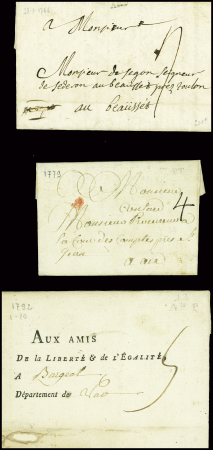 a Monsieur
Monsieur de segon seigneur
de sederon au beausset prez toulon
au beausset
1779
Monsieur
Monsieur Procureur a
la Cour des Comptes pres St
Jean
a aix
4
1792
AUX AMIS
De la LIBERTÉ & de l'ÉGALITÉ
A Bargeol
Département du Var
5